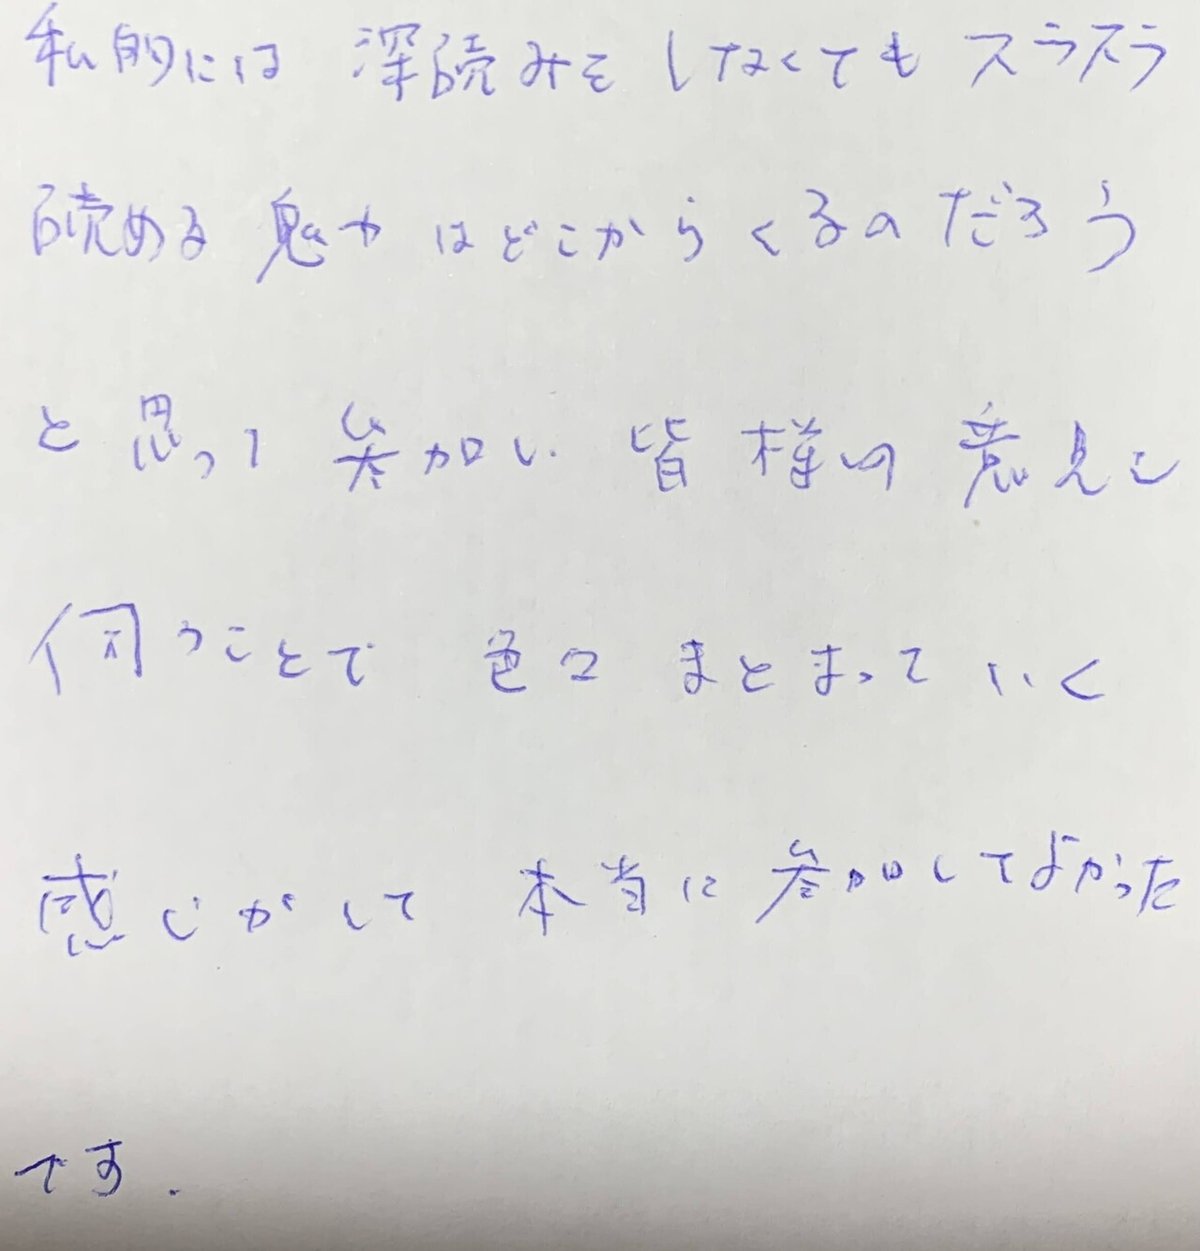 私的には 深読みをしなくても スラスラ
読める 魅力はどこからくるのだろう
と思って 参加し、皆様の意見を
伺うことで 色々 まとまっていく
感じがして 本当に参加してよかった
です.